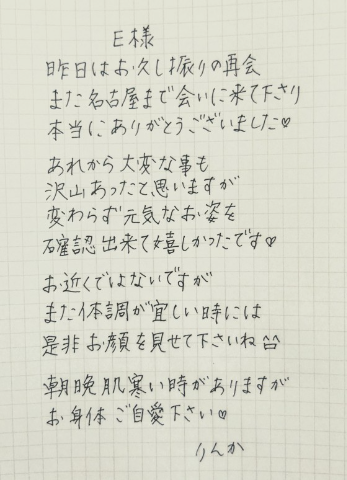 E様
昨日はお久し振りの再会
また名古屋まで会いに来て下さり
本当にありがとうございました♡
あれから大変な事も
沢山あったと思いますが
変わらず元気なお姿を
確認出来て嬉しかったです♡
お近くではないですが
また体調が宜しい時には
是非お顔を見せて下さいね^^
朝晩肌寒い時がありますが
お身体ご自愛下さい♡
りんか